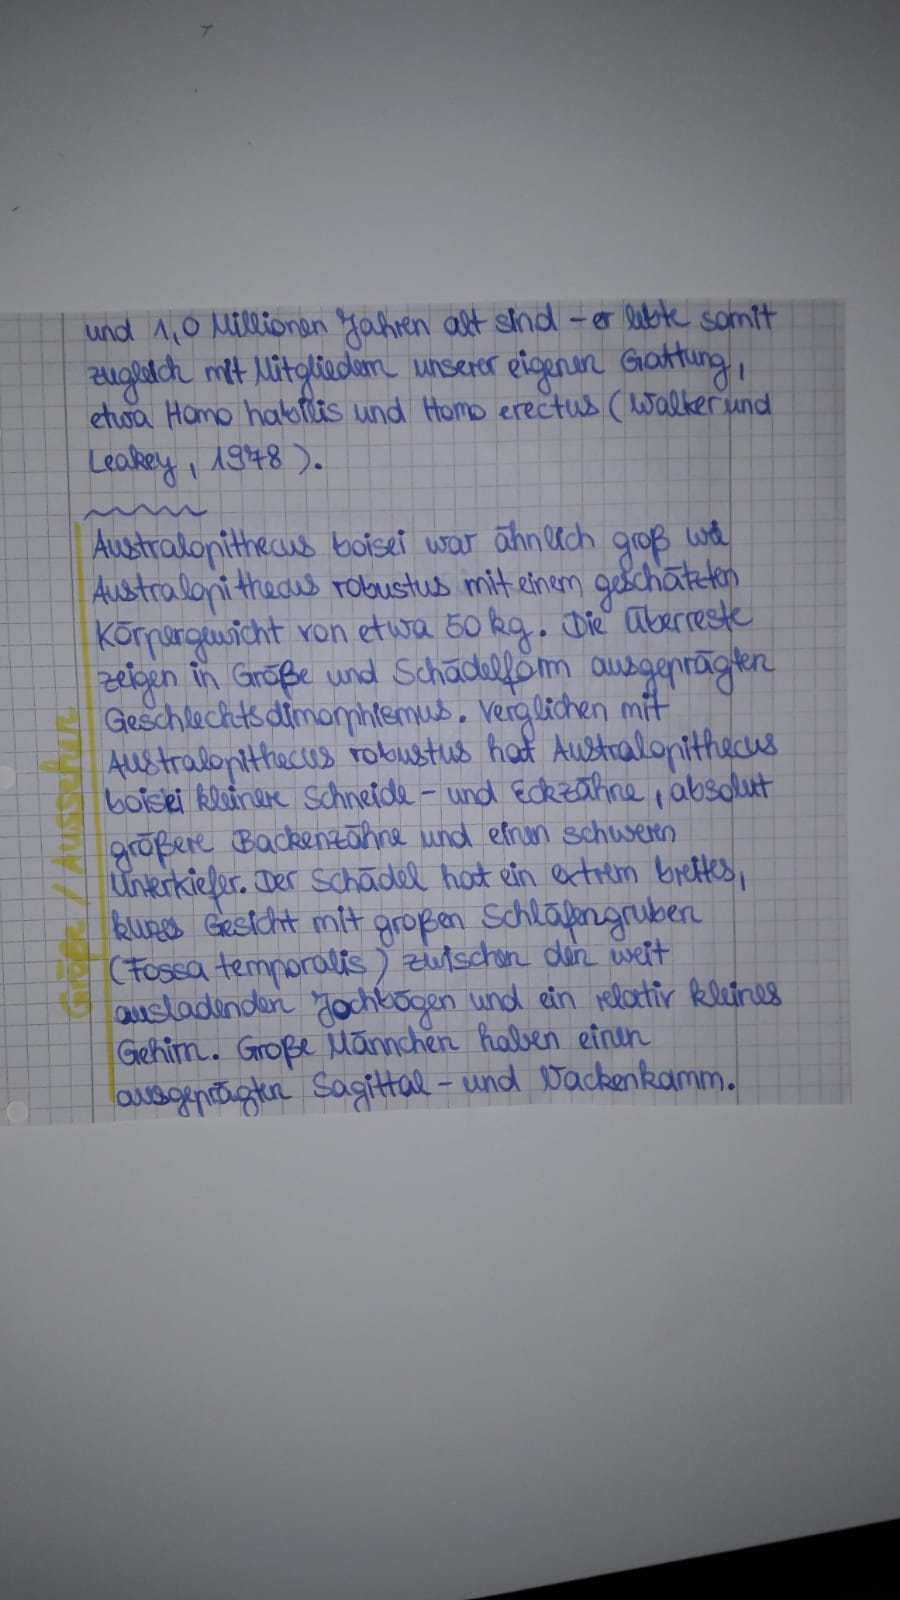 und 1,0 Millionen Jahren alt sind - er lebte somit
zugleich mit Mitgliedern unserer eigenen Gattung,
etwa Homo habilis und Homo erectus (Walker und
Leakey, 1978).
Australopithecus boisei war ähnlich groß wie
Australopithecus robustus mit einem geschätzten
Körpergewicht von etwa 50 kg. Die Überreste
zeigen in Größe und Schädelform ausgeprägten
Geschlechtsdimorphismus. Verglichen mit
Australopithecus robustus hat Australopithecus
boisei kleinere Schneide- und Eckzähne, absolut
größere Backenzähne und einen schweren
Unterkiefer. Der Schädel hat ein extrem breites,
kurzes Gesicht mit großen Schläfengruben
(Fossa temporalis) zwischen den weit
ausladenden Jochbögen und ein relativ kleines
Gehirn. Große Männchen haben einen
ausgeprägten Sagittal- und Nackenkamm.
Größe / Aussehen